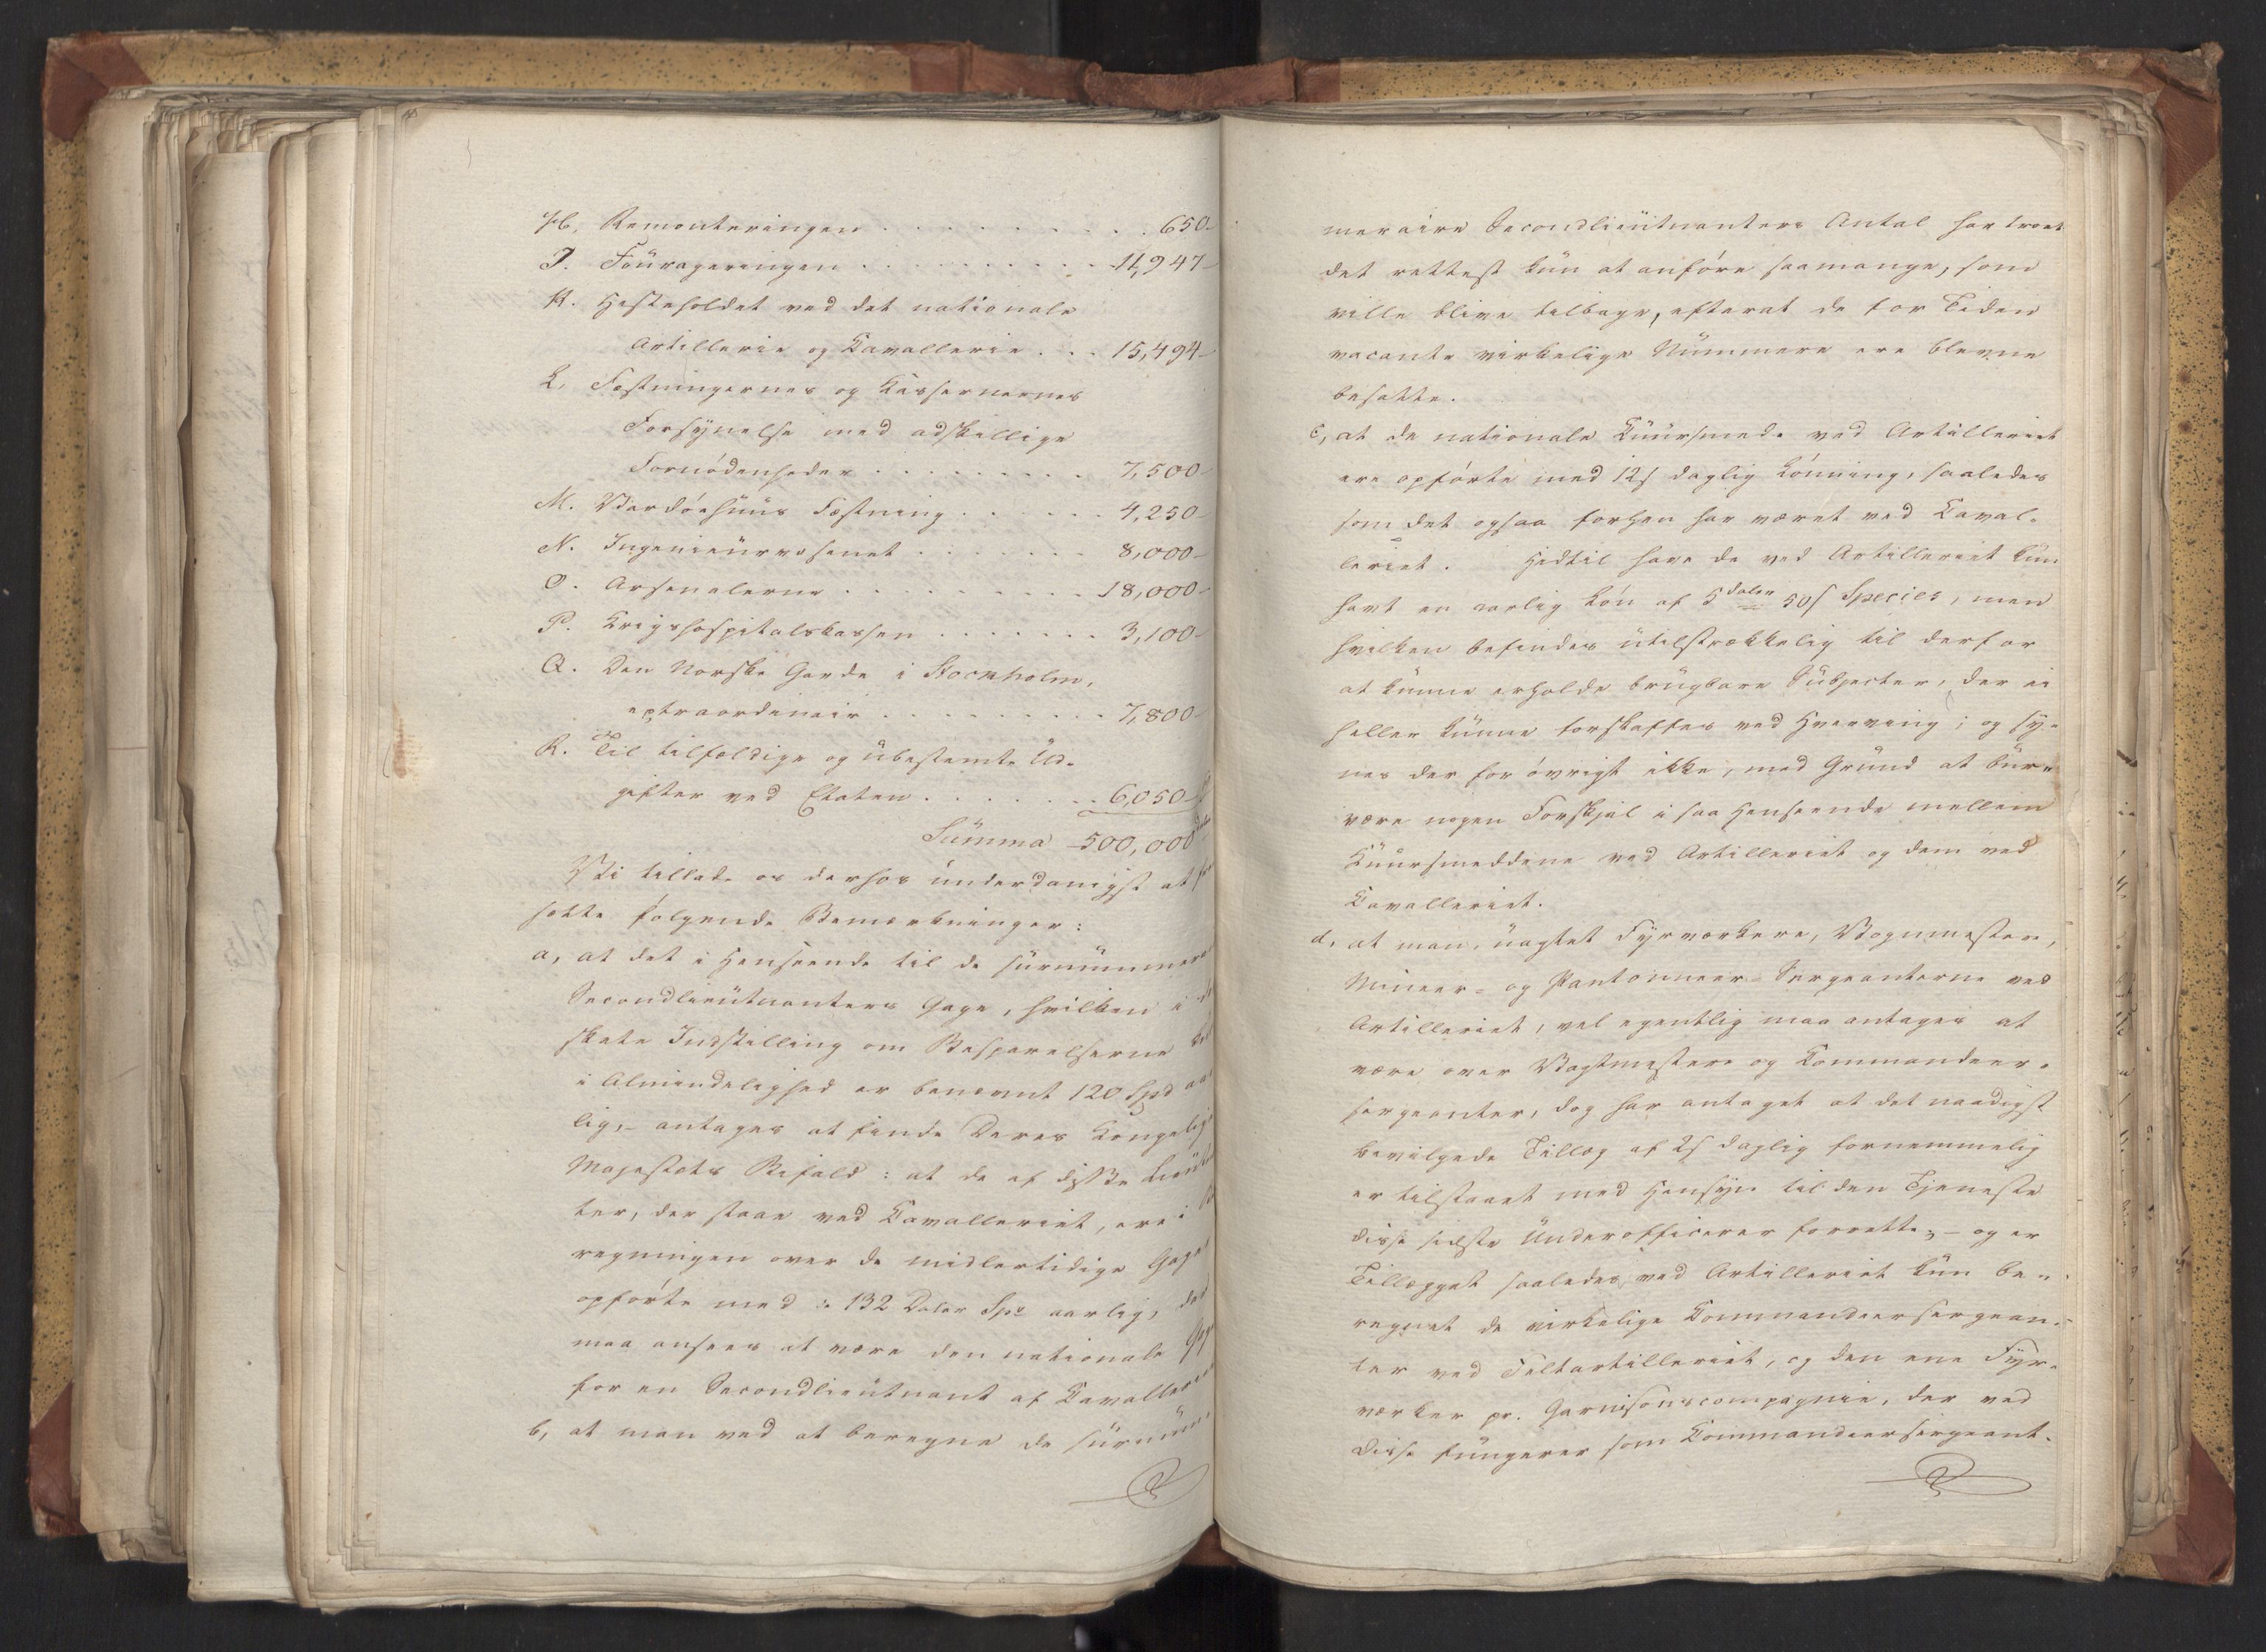 H. Remonteringen . . . . . . . . . . 650-
I. Fourageringen . . . . . . . . . . 11,947-
K. Hesteholdet ved det nationale
Artillerie og Cavallerie . . . 15,494-
L. Fæstningernes og Kassernernes
Forsÿnelse med adskillige
Fornödenheder . . . . . . . . 7,500-
M. Vardöehuus Fæstning . . . . . . 4,250-
N. Ingenieurvæsenet . . . . . . . 8,000-
O. Arsenalerne . . . . . . . . . 18,000-
P. Krigshospitalskassen . . . . . . . 3,100-
Q. Den Norske Garde i Stockholm,
extraordinair . . . . . . . . . 7,800-
R. Til tilfældige og ubestemte Ud-
gifter ved Etaten . . . . . . . 6,050-
Summa 500,000
Vi tillade os derhos underdanigst at
sætte følgende Bemærkninger:
a, at det i Henseende til de surnummerai
Secondlieutnanters Gage, hvilken i
skete Indstilling om Besparelserne
i Almindelighed er benævnt 120 Spd
lig,- antages at finde Deres Kongelig
Majestæts Bifald: at de af disse Lieut
ter, der staae ved Cavalleriet, ere i
regningen over de midlertidige Gager
opförte med 132 Daler Spe aarlig,
maa ansees at være den nationale Gage
for en Secondlieutnant af Cavalleriet
b, at man ved at beregne de surnum-
meraire Secondlieutnanters Antal har troet
det rettest kun at anföre saamange, som
ville blive tilbage, efterat de for Tiden
vacante virkelige Nummere ere blevne
besatte.
c, at de nationale Cuursmede ved Artilleriet
ere opförte med 12 s daglig Lönning, saaledes
som det ogsaa forhen har været ved Caval-
leriet. Hidtil have de ved Artilleriet kun
havt en aarlig Lön af 5 Daler 50 s Species, men
hvilken befindes utilstrækkelig til derfor
at kunne erholde brugbare Subjecter, der ei
heller kunne forskaffes ved Hverving; og sy-
nes der for övrigt ikke, med Grund at bur-
være nogen Forskjel i saa Henseende mellem
Cuursmeddene ved Artilleriet og dem ved
Cavalleriet.
d, at man, uagtet Fyrværkere, Vognmestere,
Mineer- og Pantonneer-Sergeanterne ved
Artilleriet, vel egentlig maa antages at
være over Vagtmestere og Commandeer-
sergeanter, dog har antaget at det naadigst
bevilgede Tillæg af 2 s daglig fornemmelig
er tilstaaet med Hensyn til den Tjeneste
disse sidste Underofficerer forrette;- og er
Tillægget saaledes ved Artilleriet kun be-
regnet de virkelige Commandeersergean-
ter ved Feltartilleriet, og den ene Fyr-
værker pr. Garnisonscompagnie, der ved
disse fungerer som Commandeersergeant.